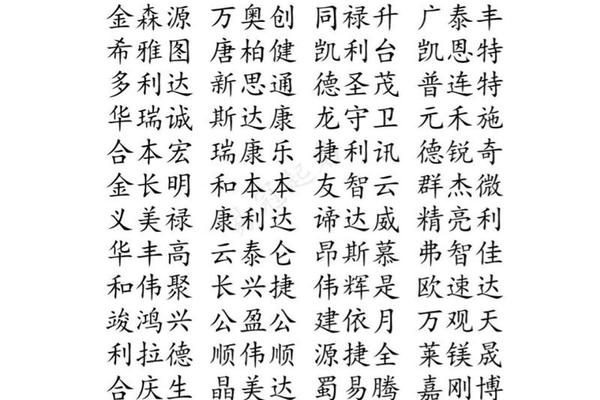 金森源 万奥创 同禄升 广泰丰
希雅图 唐柏健 凯利台 凯恩特
多利达 新思通 德圣茂 普连特
华瑞诚 斯达康 龙守卫 元禾施
合本宏 瑞康乐 捷利讯 德锐奇
金长明 和本本 友智云 群杰微
义美禄 康利达 谛达威 精亮利
华丰高 云泰仑 昂斯慕 弗智佳
和伟聚 长兴捷 伟辉是 欧速达
竣鸿兴 公盈公 建依月 万观天
利拉德 顺伟顺 源捷全 莱镁晟
合庆生 晶美达 蜀易腾 嘉刚博